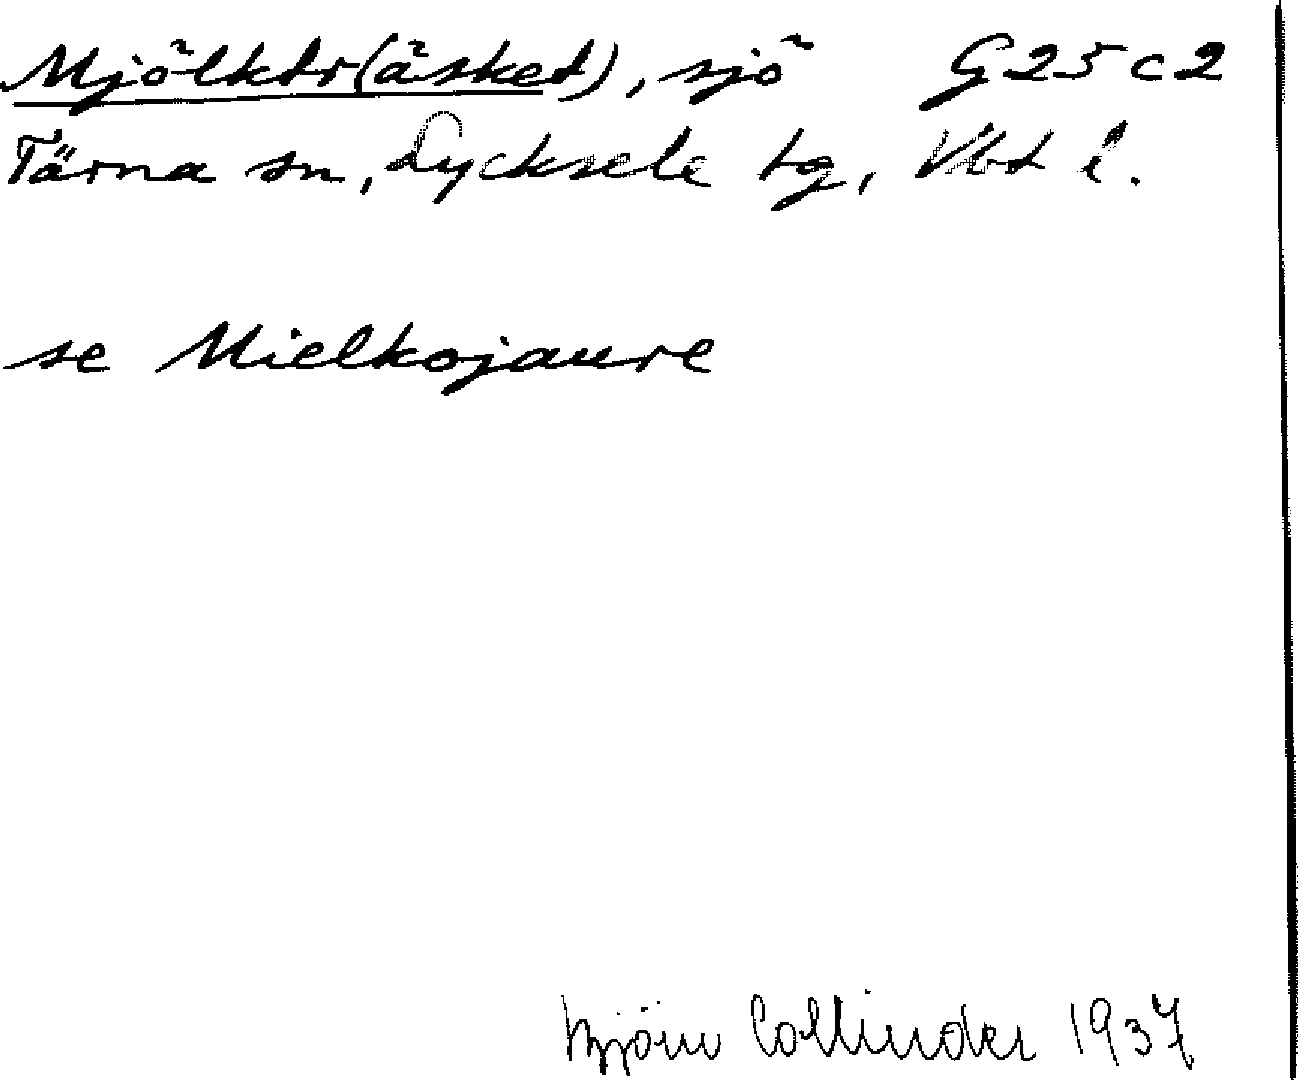 Mjölktr(äsket), sjö G25c2
Tärna sn, Lycksele tg, Vbt l.
se Mielkojaure
Björn Collinder 1937